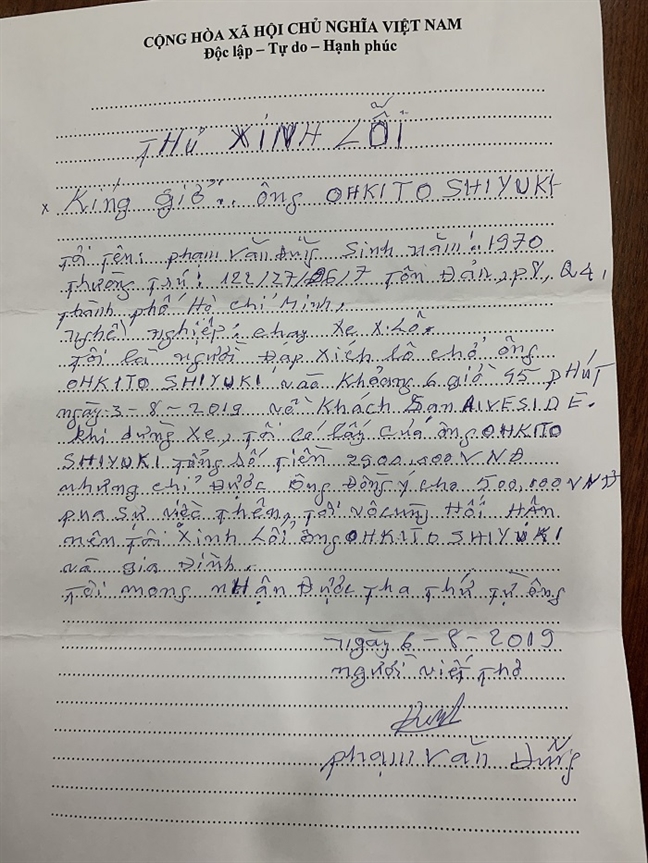 CỘNG HÒA XÃ HỘI CHỦ NGHĨA VIỆT NAM
Độc lập – Tự do – Hạnh phúc
THƯ XINH LỖI
x Kính giử.. ông OHKITO SHIYUKI
Tôi tên: phạm văn Dũng Sinh năm: 1970
Thường Trú: 122/27/26/7 Tôn Đản, p8, Q4,
Thành phố Hồ chí Minh,
nghề nghiệp: chạy xe x.Lô.
Tôi là người Đáp xích lô chở ông
OHKITO SHIYUKI vào khoảng 6 giờ 45 PHÚT
ngày 3-8-2019 về Khách Sạn RIVESIDE.
khi dừng xe, Tôi có lấy của ông OHKITO
SHIYUKI Tổng Số Tiền 2900.000 VNĐ
nhưng chỉ Được ông Đồng ý cho 500.000 VNĐ
qua sự việc Trên, Tôi vô cùng Hối Hận
nên Tôi xinh Lỗi ông OHKITO SHIYUKI
và gia Đình.
Tôi mong nHận Được Tha Thứ Từ ông
ngày 6-8-2019
người viết Thơ
phạm văn Dũng